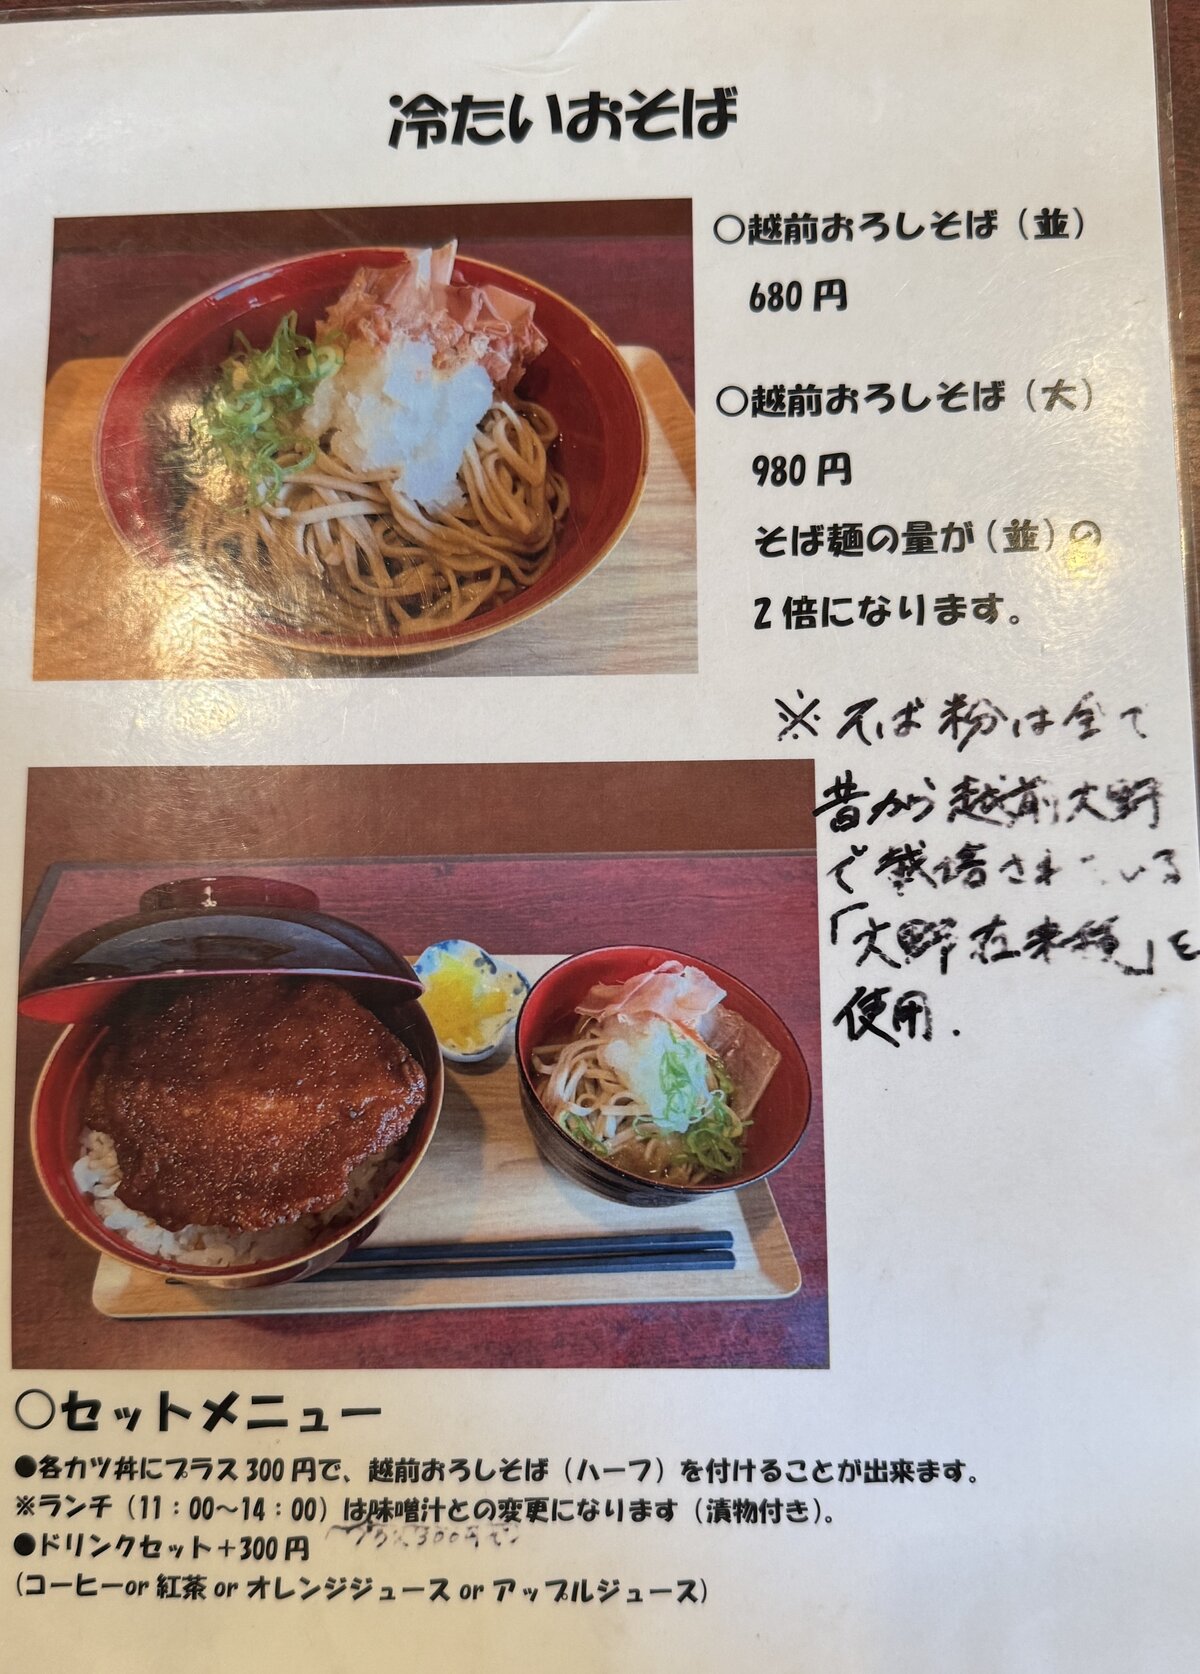 冷たいおそば
○越前おろしそば（並）
680円
○越前おろしそば（大）
980円
そば麺の量が（並）の
2倍になります。
※そば粉は全て
昔から越前大野
で栽培されている
「大野在来種」を
使用.
○セットメニュー
●各カツ丼にプラス300円で、越前おろしそば（ハーフ）を付けることが出来ます。
※ランチ（11：00～14：00）は味噌汁との変更になります（漬物付き）。
プラス300円で
●ドリンクセット＋300円
(コーヒーor 紅茶 or オレンジジュース or アップルジュース)